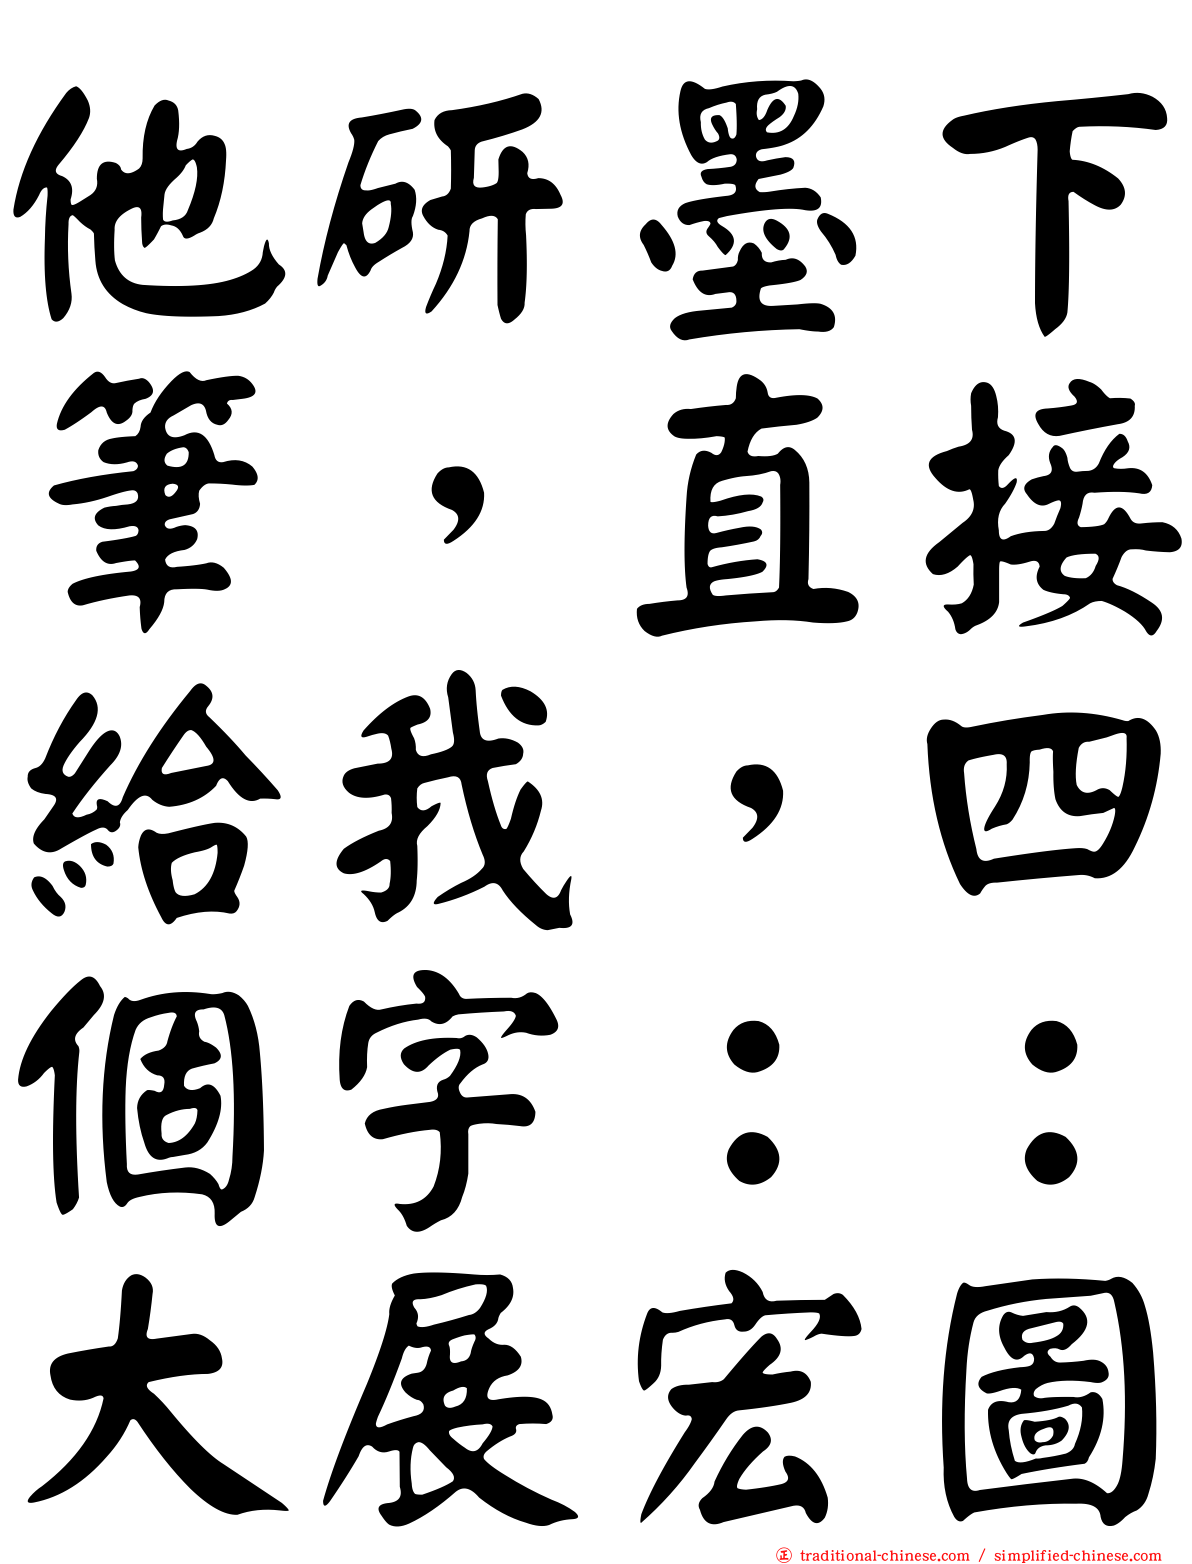 他研墨下
筆，直接
給我，四
個字：：
大展宏圖
㊣ traditional-chinese.com / simplified-chinese.com